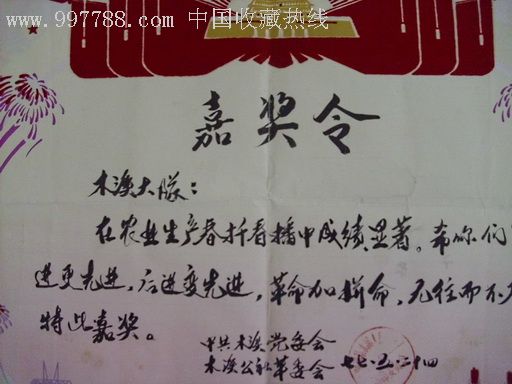 www.997788.com 中国收藏热线
嘉奖令
木渔大隊：
在农业生产春折春播中成绩显著。希你们
进更先进，后进变先进，革命加拼命，无往而不
特此嘉奖。
中共木渔党委会
木渔公社革委会 七七.五.二十四